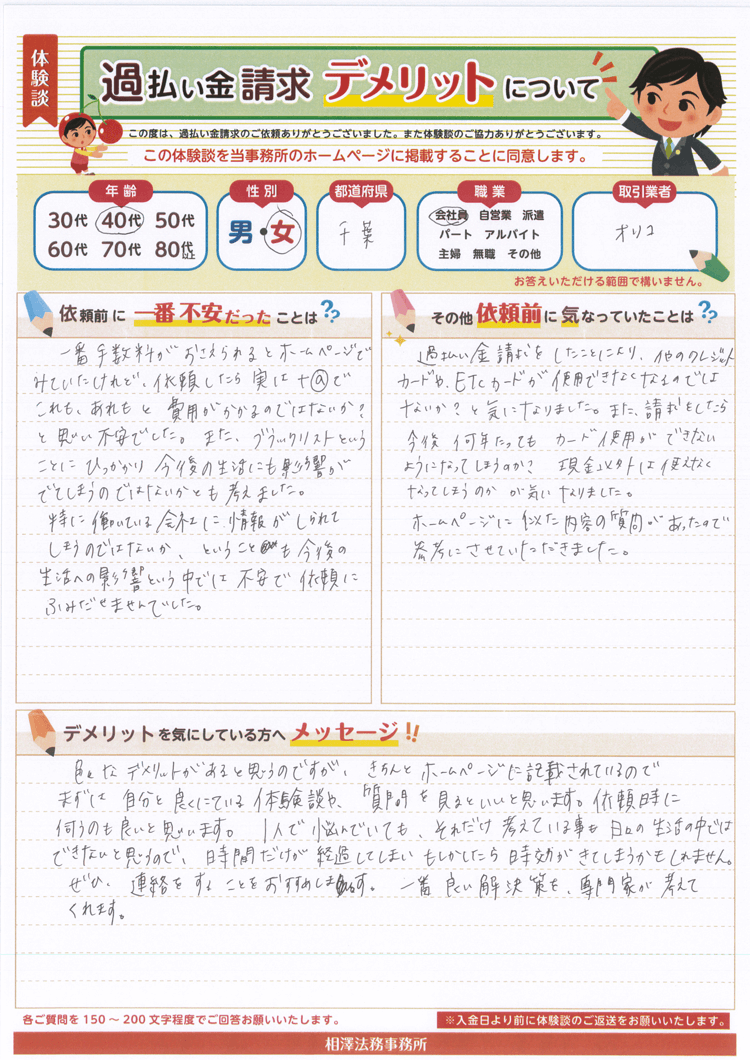 体験談
過払い金請求 デメリットについて
この度は、過払い金請求のご依頼ありがとうございました。また体験談のご協力ありがとうございます。
この体験談を当事務所のホームページに掲載することに同意します。
年齢
30代 40代 50代
60代 70代 80代以上
性別
男・女
都道府県
千葉
職業
会社員 自営業 派遣
パート アルバイト
主婦 無職 その他
取引業者
オリコ
お答えいただける範囲で構いません。
依頼前に 一番不安だった ことは??
一番手数料がおさえられるとホームページで
みていたけれど、依頼したら実は+@で
これも、あれもと費用がかかるのではないか?
と思い不安でした。また、ブラックリストという
ことにひっかかり今後の生活にも影響が
でてしまうのではないかとも考えました。
特に働いている会社に情報がしられて
しまうのではないか、ということも今後の
生活への影響という中では不安で依頼に
ふみだせませんでした。
その他 依頼前に気なっていたことは??
過払い金請求をしたことにより、他のクレジット
カードや、ETCカードが使用できなくなるのでは
ないか?と気になりました。また、請求をしたら
今後何年たってもカード使用ができない
ようになってしまうのか? 現金以外は使えなく
なってしまうのかが気いなりました。
ホームページに似た内容の質問があったので
参考にさせていただきました。
デメリットを気にしている方へ メッセージ!!
色々なデメリットがあると思うのですが、きちんとホームページに記載されているので
まずは自分と良くにている体験談や、質問を見るといいと思います。依頼時に
伺うのも良いと思います。1人で悩んでいても、それだけ考えている事も日々の生活の中では
できないと思うので、時間だけが経過してしまいもしかしたら時効がきてしまうかもしれません。
ぜひ、連絡をすることをおすすめします。一番良い解決策を、専門家が考えて
くれます。
各ご質問を150〜200文字程度でご回答お願いいたします。
※入金日より前に体験談のご返送をお願いいたします。
相澤法務事務所